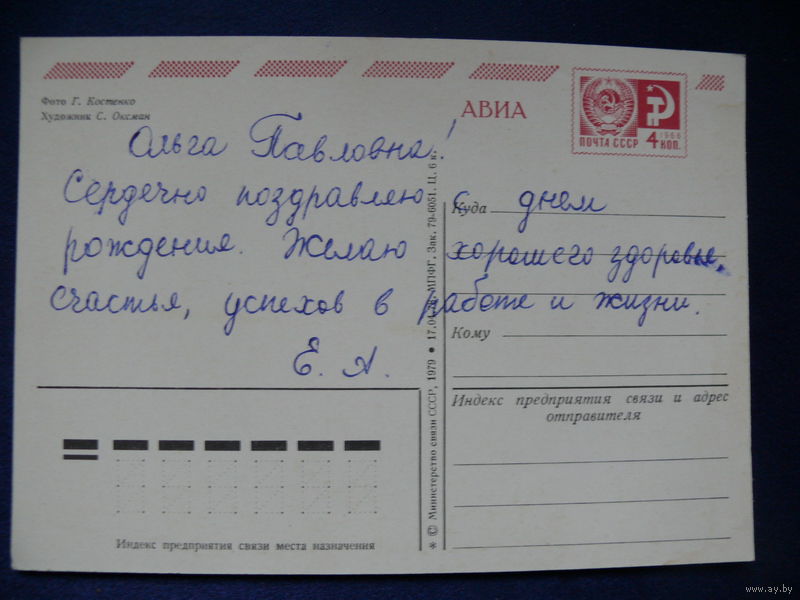 Фото Г. Костенко
Художник С. Оксман
АВИА
1966
ПОЧТА СССР 4 КОП.
Ольга Павловна!
Сердечно поздравляю с днем
рождения. Желаю хорошего здоровья,
счастья, успехов в работе и жизни.
Е. А.
Куда
Кому
Индекс предприятия связи и адрес
отправителя
Индекс предприятия связи места назначения
* © Министерство связи СССР, 1979 • 17.04.79. МПФГ. Зак. 79-6051. Ц. 6 к.
www.ay.by